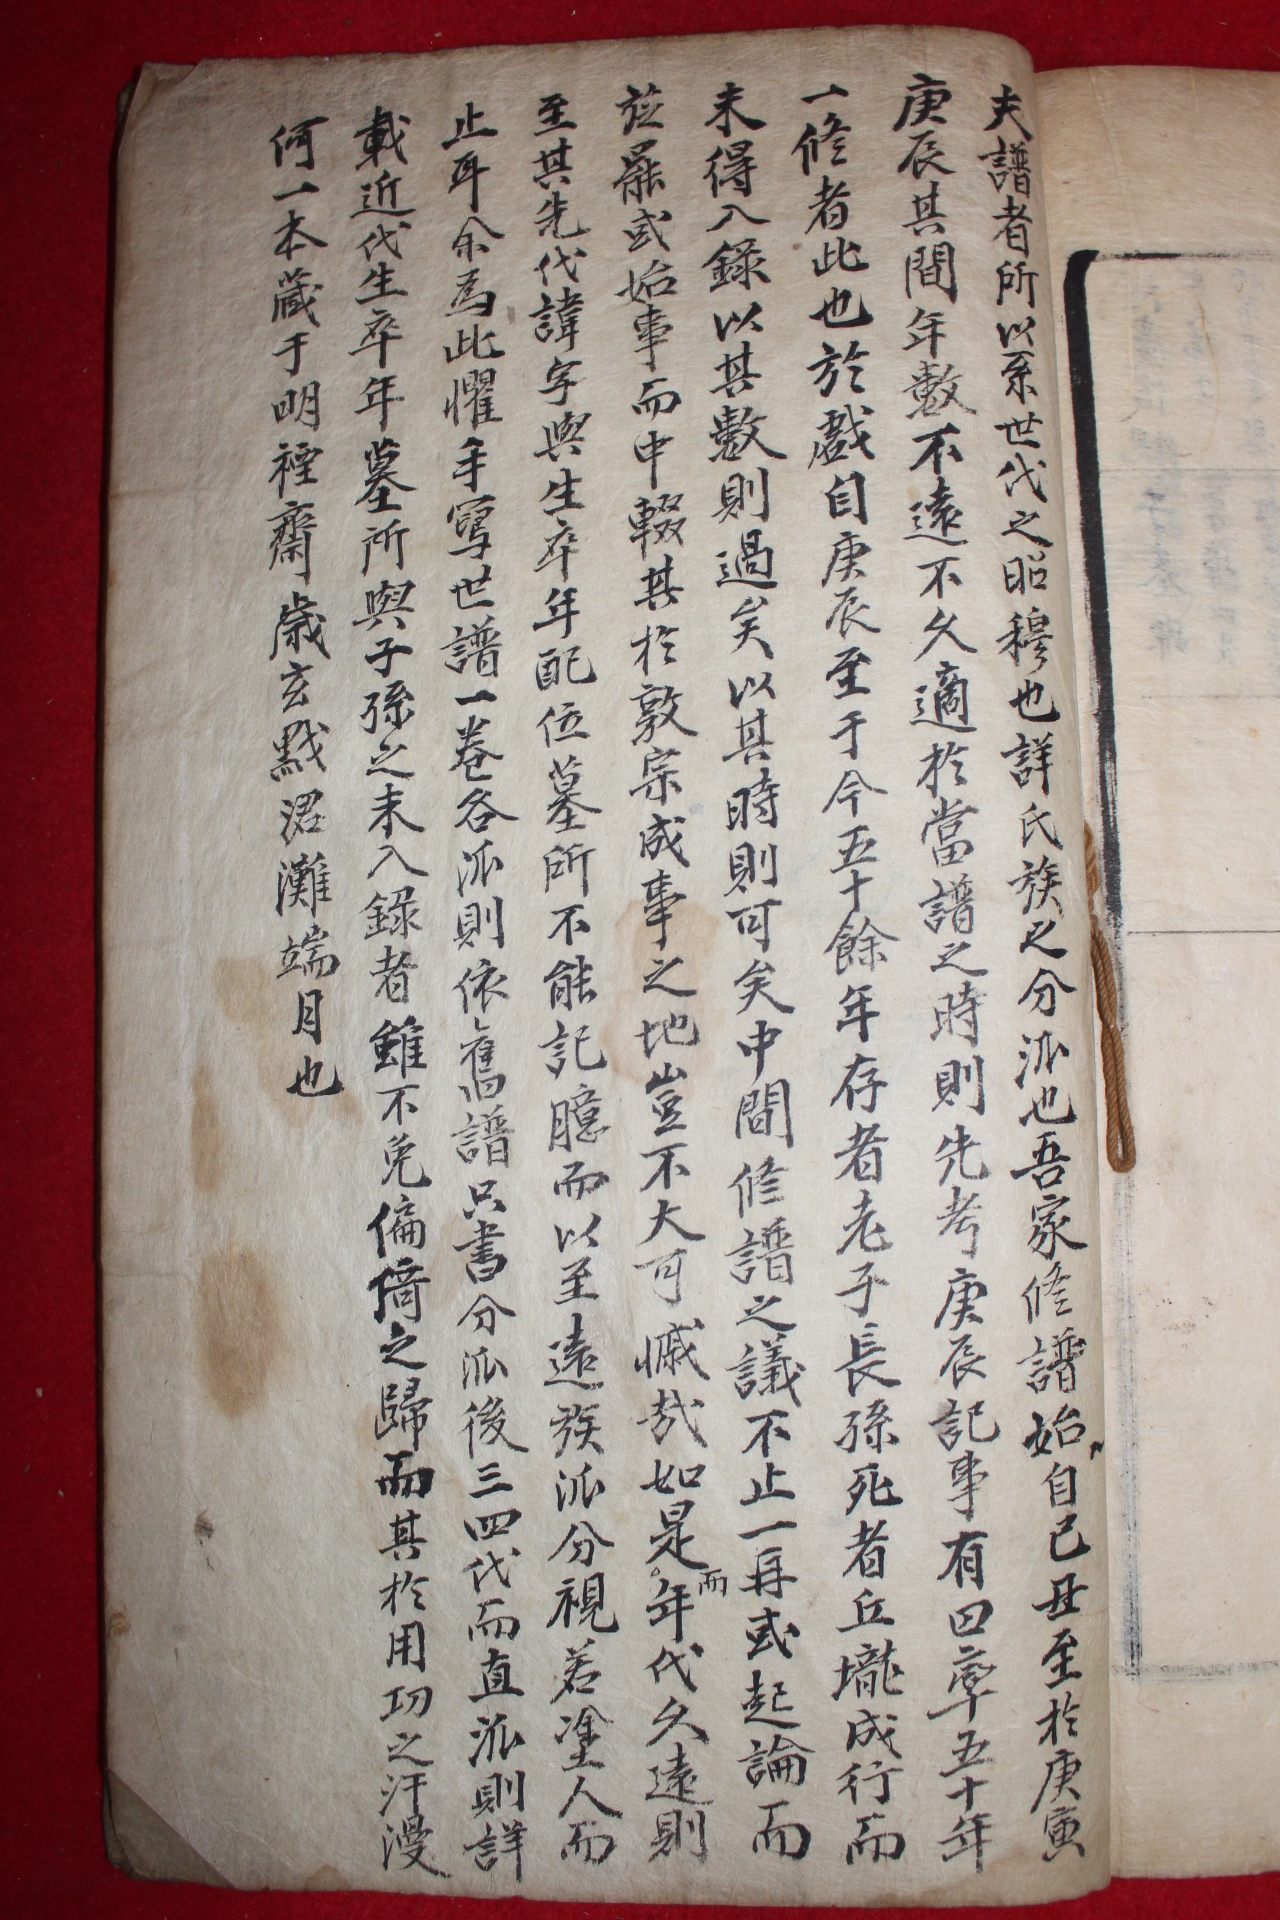 夫譜者所以系世代之昭穆也詳氏族之分派也吾家修譜始自己丑至於庚寅
庚辰其間年數不遠不久適於當譜之時則先考庚辰記事有曰率五十年
一修者此也於戲自庚辰至于今五十餘年存者老子長孫死者丘壠成行而
未得入錄以其數則過矣以其時則可矣中間修譜之議不止一再或起論而
旋罷或始事而中輟其於敦宗成事之地豈不大可慽哉如是而年代久遠則
至其先代諱字與生卒年配位墓所不能記臆而以至遠族派分視若塗人而
止耳余爲此懼手寫世譜一卷各派則依舊譜只書分派後三四代而直派則詳
載近代生卒年墓所與子孫之未入錄者雖不免偏倚之歸而其於用功之汗漫
何一本藏于明禋齋歲玄黓涒灘端月也